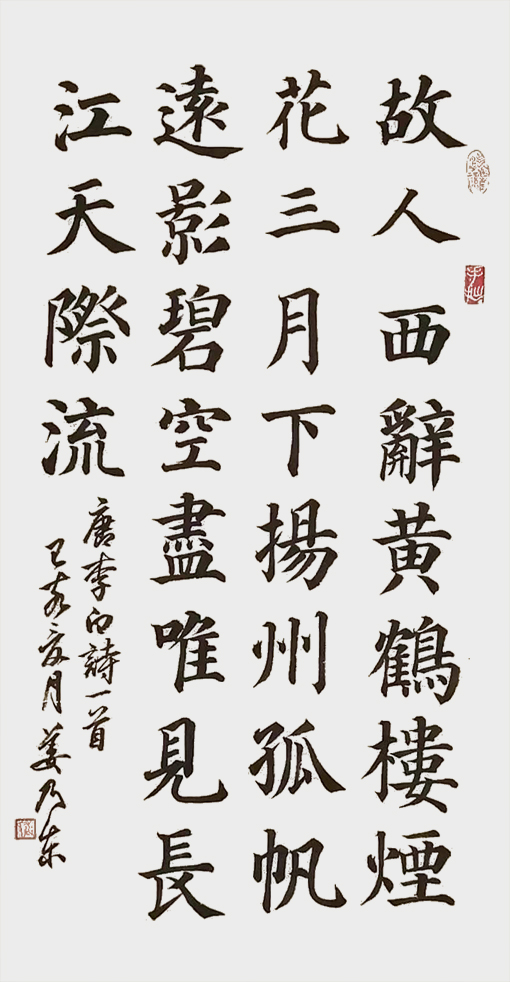 故人西辭黄鶴樓煙
花三月下揚州孤帆
遠影碧空盡唯見長
江天際流
唐李白詩一首
己亥夏月姜乃東